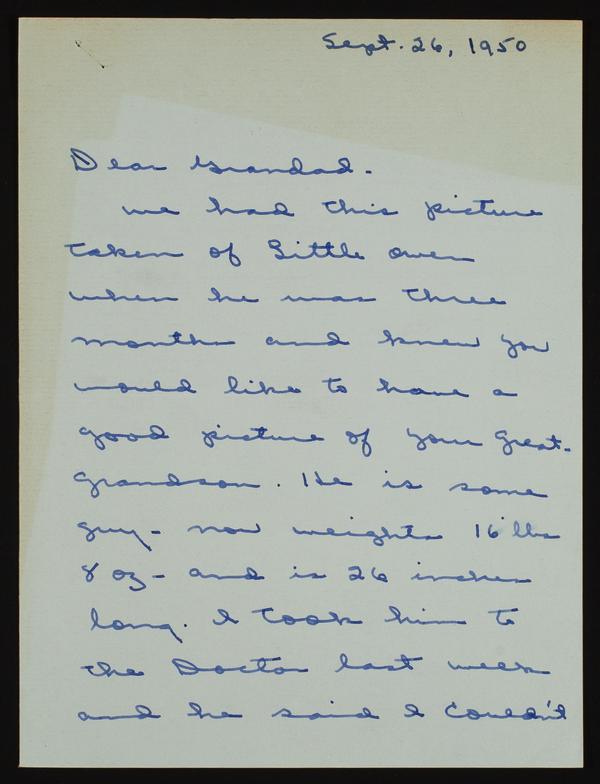 Sept. 26, 1950
Dear Grandad.
we had this picture
taken of Little Owen
when he was three
months and knew you
would like to have a
good picture of your great-
grandson. He is some
guy - now weights 16 lbs
8 oz - and is 26 inches
long. I took him to
the Doctor last week
and he said I couldn't